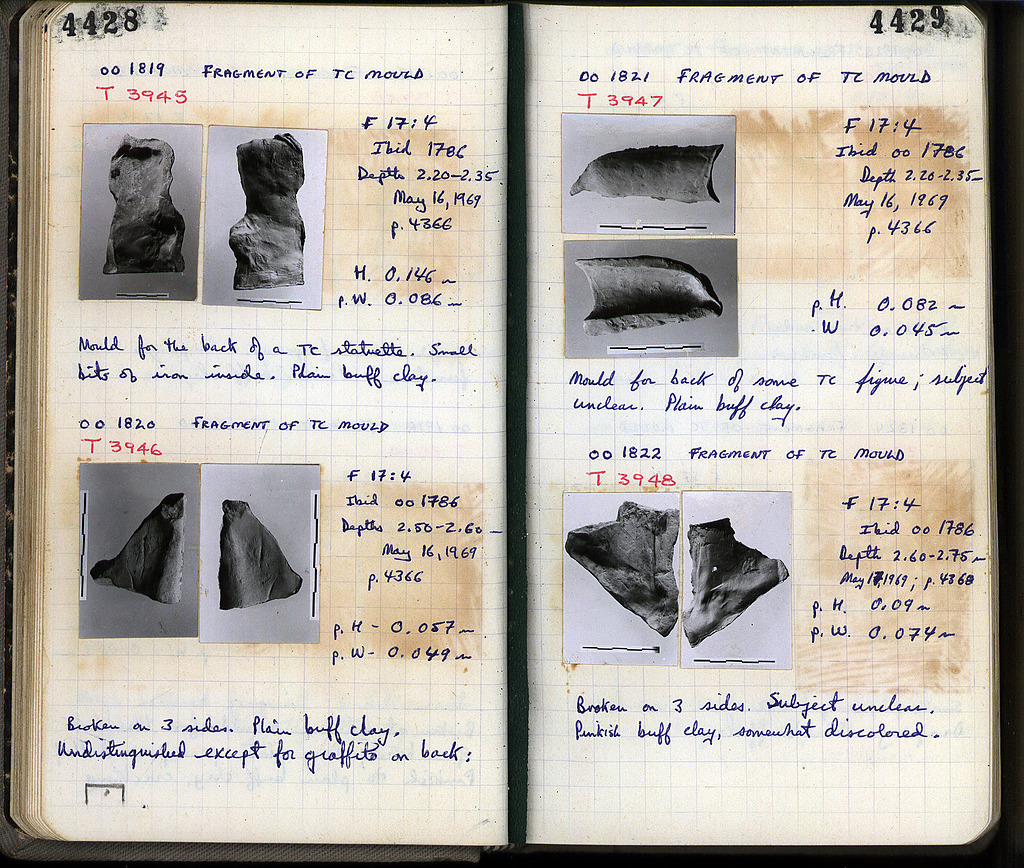 4428
OO 1819 FRAGMENT OF TC MOULD
T 3945
F 17:4
Ibid 1786
Depth 2.20-2.35
May 16, 1969
p. 4366
H. 0.146 m
p.W. 0.086 m
Mould for the back of a TC statuette. Small
bits of iron inside. Plain buff clay.
OO 1820 FRAGMENT OF TC MOULD
T 3946
F 17:4
Ibid OO 1786
Depths 2.50-2.60
May 16, 1969
p. 4366
p. H - 0.057 m
p. W- 0.049 m
Broken on 3 sides. Plain buff clay.
Undistinguished except for graffito on back:
4429
OO 1821 FRAGMENT OF TC MOULD
T 3947
F 17:4
Ibid OO 1786
Depth 2.20-2.35
May 16, 1969
p. 4366
p. H. 0.082 m
.W 0.045 m
Mould for back of some TC figure; subject
unclear. Plain buff clay.
OO 1822 FRAGMENT OF TC MOULD
T 3948
F 17:4
Ibid OO 1786
Depth 2.60-2.75 m
May 17, 1969; p. 4368
p. H. 0.09 m
p. W. 0.074 m
Broken on 3 sides. Subject unclear.
Pinkish buff clay, somewhat discolored.